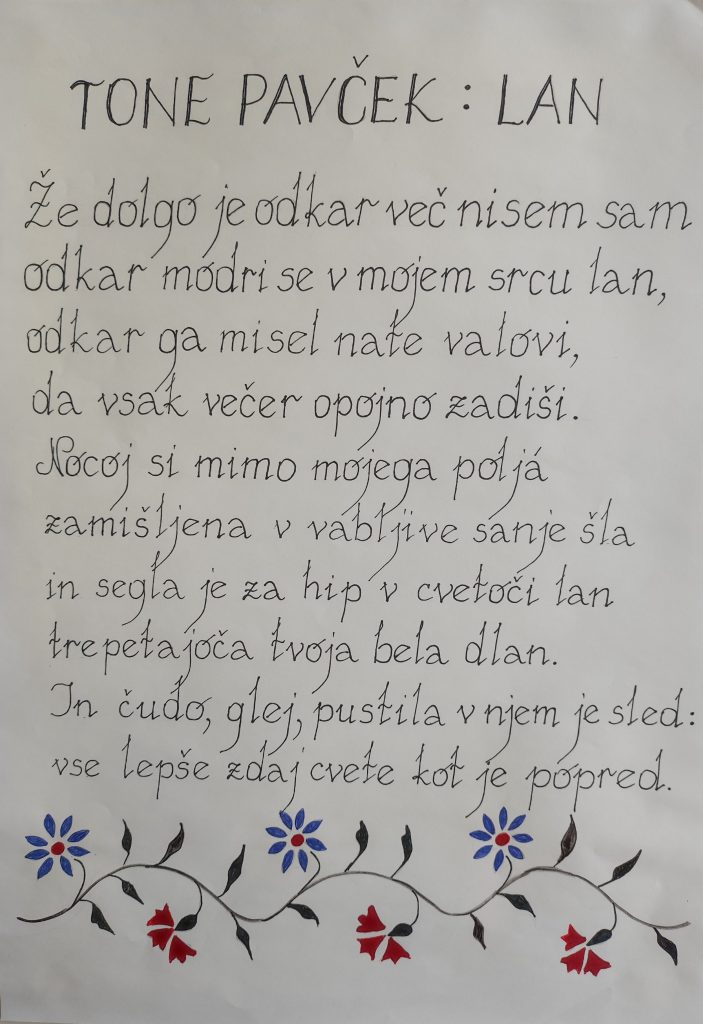 TONE PAVČEK : LAN
Že dolgo je odkar več nisem sam
odkar modri se v mojem srcu lan,
odkar ga misel nate valovi,
da vsak večer opojno zadiši.
Nocoj si mimo mojega poljá
zamišljena v vabljive sanje šla
in segla je za hip v cvetoči lan
trepetajoča tvoja bela dlan.
In čudo, glej, pustila v njem je sled:
vse lepše zdaj cvete kot je popred.